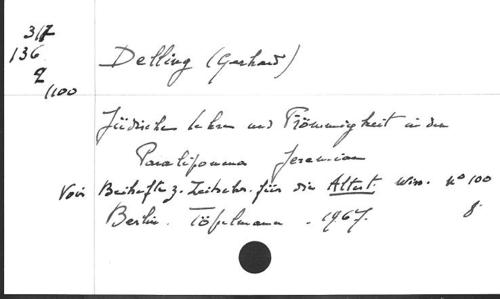 317
136
2
/100
Delling (Gerhard)
Jüdische Lehre und Frömmigkeit in den
Paralipomena Jeremiae
Voir Beihefte z. Zeitschr. für die Altest. Wiss. n° 100
Berlin. Töpelmann. 1967. 8°